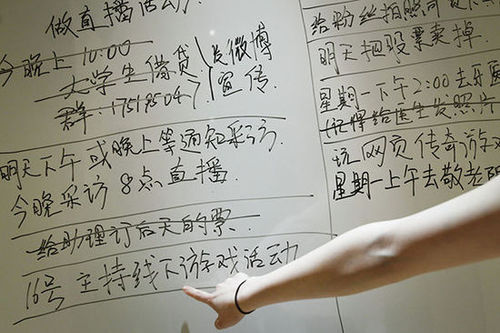 做直播活动
今晚上 10:00
大学生借贷
群: 175185047
发微博
宣传
明天下午或晚上等通知采访.
今晚采访 8点直播
给助理订后天的票
16号 主持线下游戏活动
给粉丝拍照
明天把股票卖掉.
星期一下午2:00去牙医
(记得给医生发照片
玩网页传奇游戏
星期一上午去敬老院